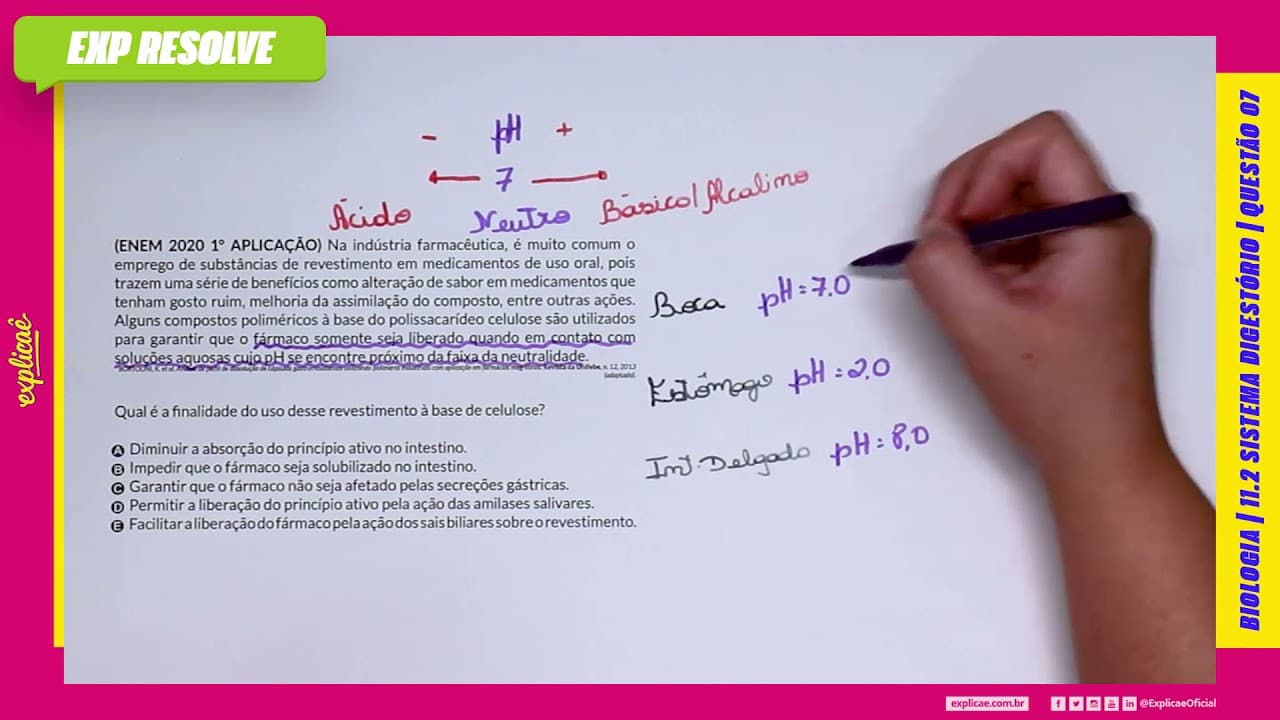 EXP RESOLVE
- pH +
7
Ácido Neutro Básico/Alcalino
(ENEM 2020 1° APLICAÇÃO) Na indústria farmacêutica, é muito comum o
emprego de substâncias de revestimento em medicamentos de uso oral, pois
trazem uma série de benefícios como alteração de sabor em medicamentos que
tenham gosto ruim, melhoria da assimilação do composto, entre outras ações.
Alguns compostos poliméricos à base do polissacarídeo celulose são utilizados
para garantir que o fármaco somente seja liberado quando em contato com
soluções aquosas cujo pH se encontre próximo da faixa da neutralidade.
n. 12, 2013
(adaptado).
Qual é a finalidade do uso desse revestimento à base de celulose?
A Diminuir a absorção do princípio ativo no intestino.
B Impedir que o fármaco seja solubilizado no intestino.
C Garantir que o fármaco não seja afetado pelas secreções gástricas.
D Permitir a liberação do princípio ativo pela ação das amilases salivares.
E Facilitar a liberação do fármaco pela ação dos sais biliares sobre o revestimento.
Boca pH = 7.0
Estômago pH = 2.0
Int. Delgado pH = 8,0
explicaê
BIOLOGIA | 11.2 SISTEMA DIGESTÓRIO | QUESTÃO 07
explicae.com.br
@ExplicaeOficial